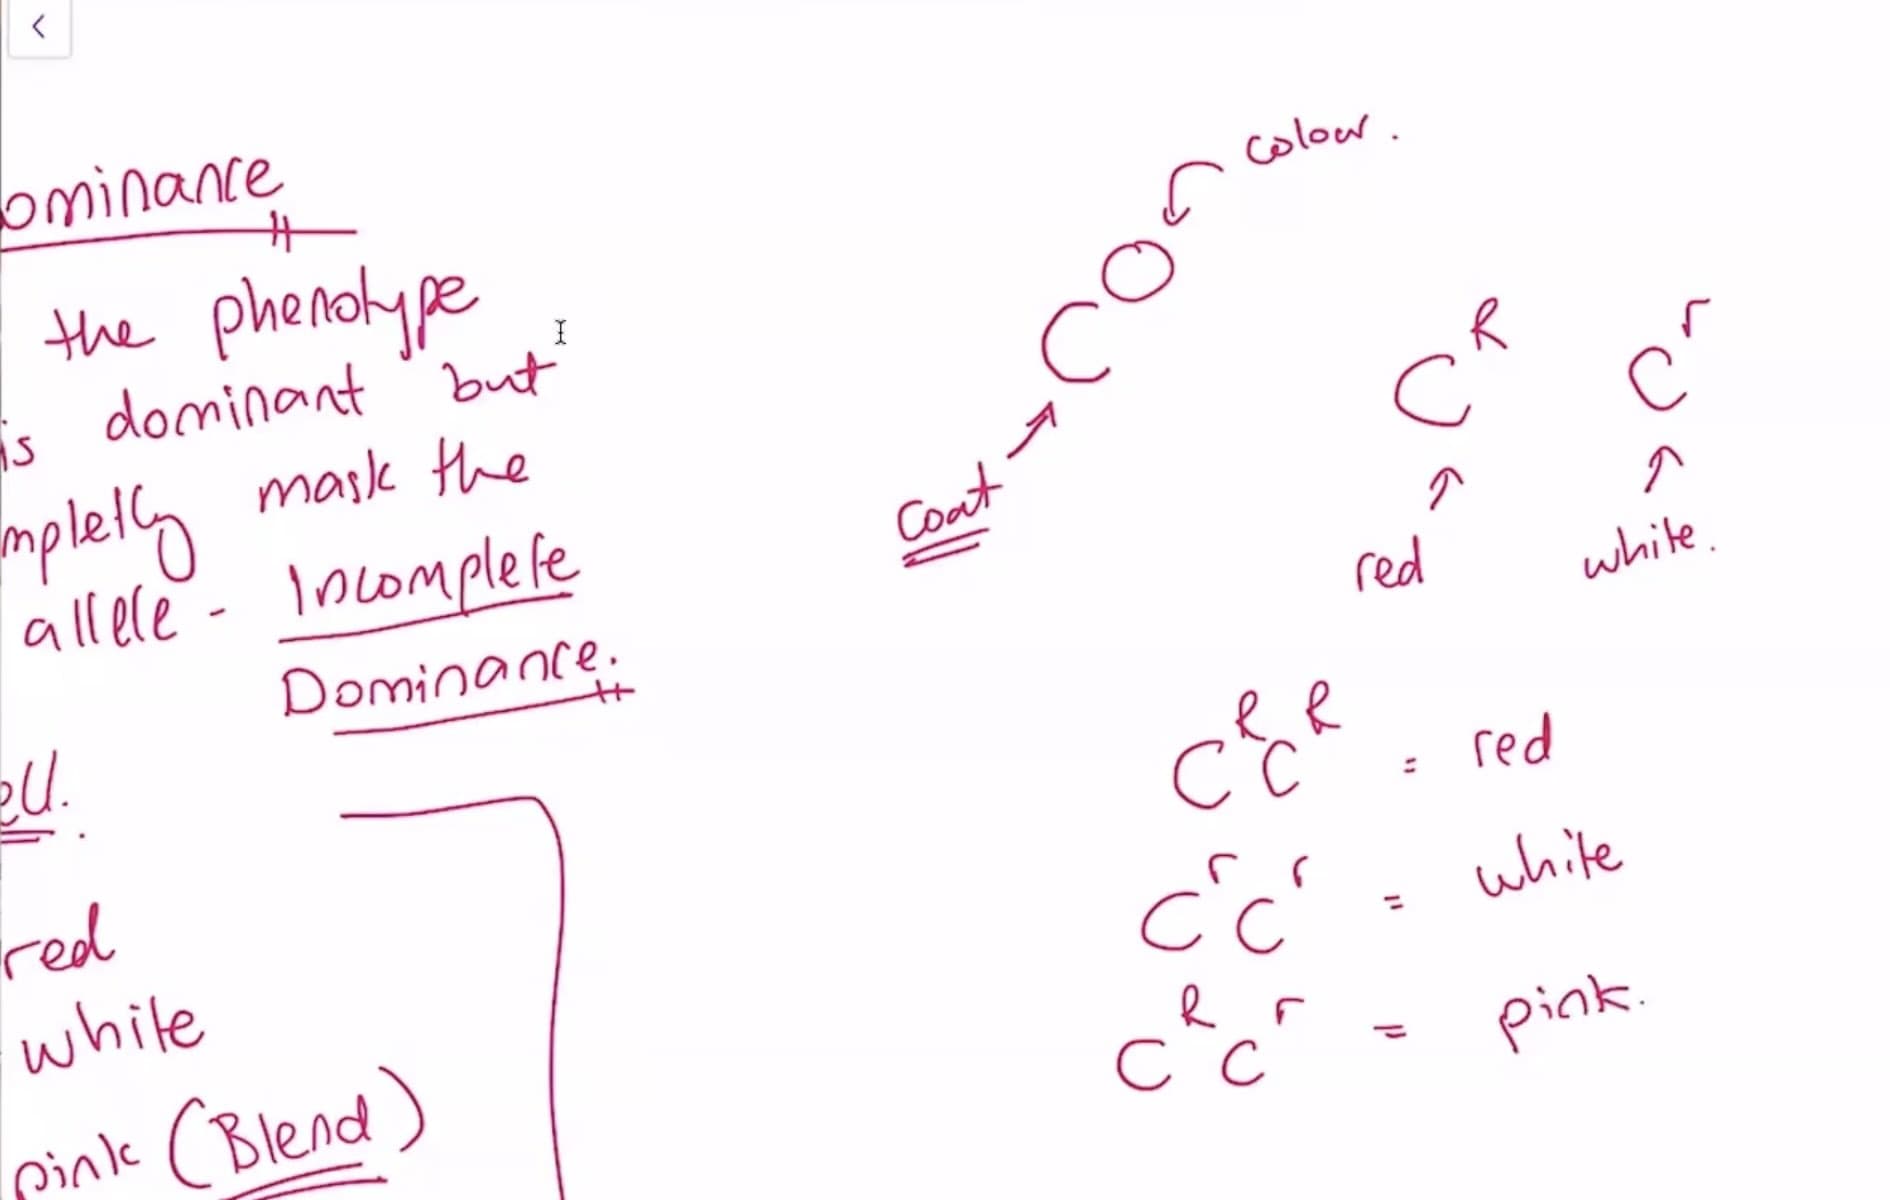 ominance
the phenotype
is dominant but
mpletly mask the
allele - Incomplete
Dominance.
ell.
red
white
pink (Blend)
colour.
C^O
Coat
C^R C^r
red white.
C^R C^R = red
C^r C^r = white
C^R C^r = pink.